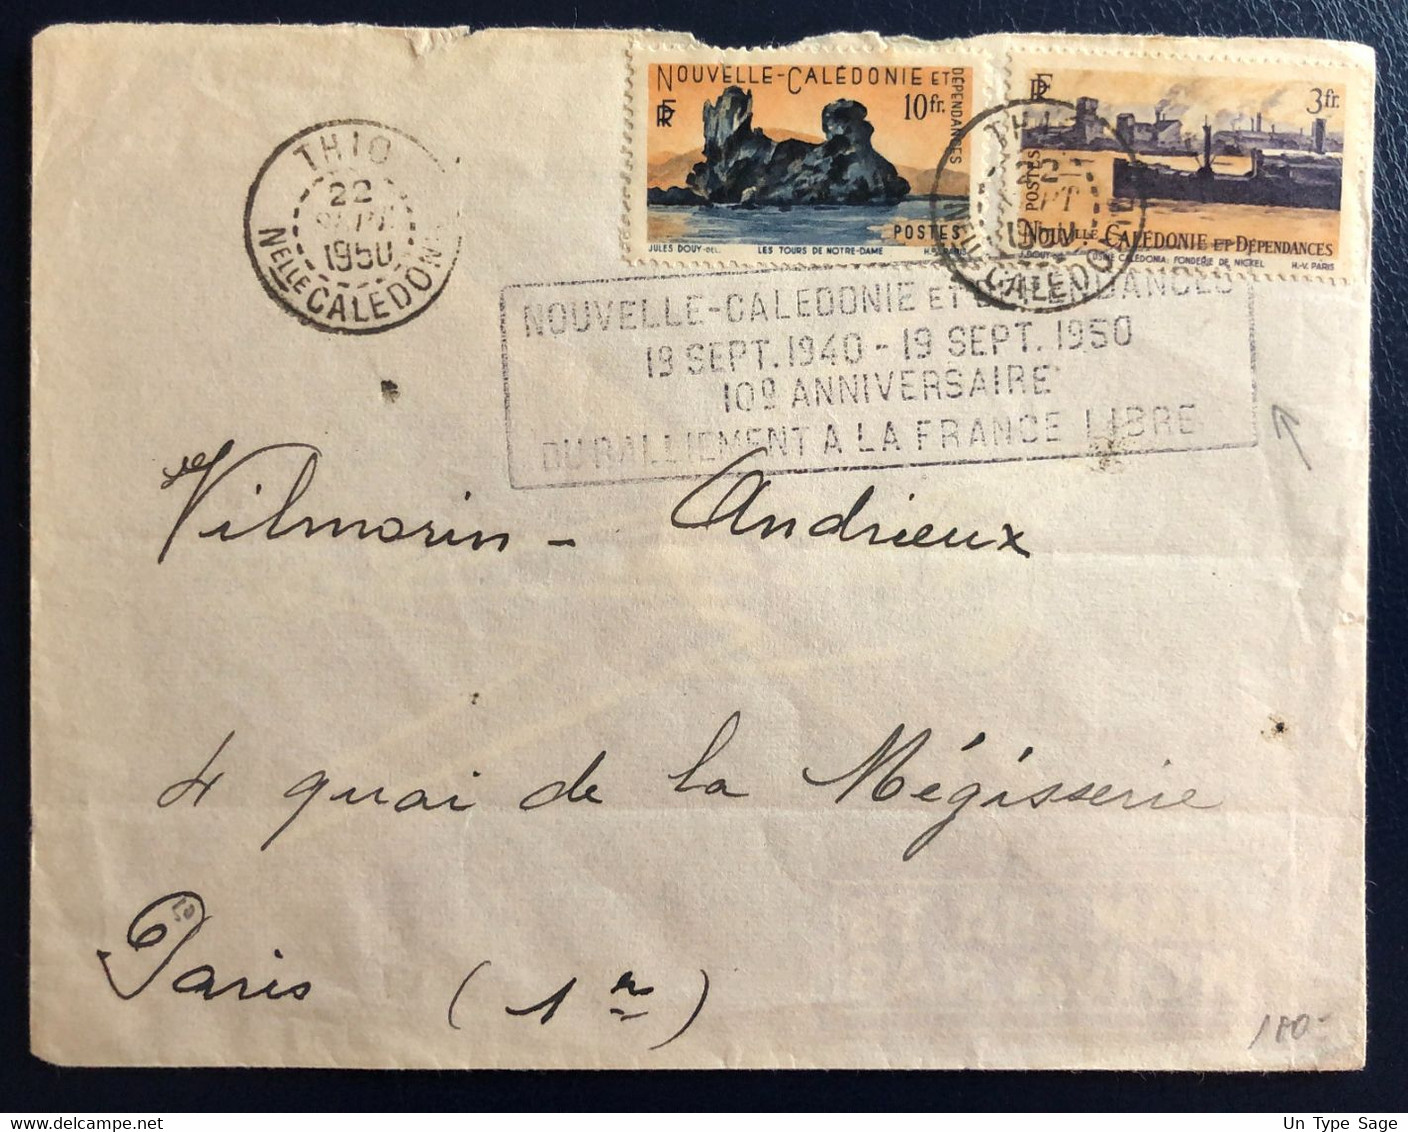 NOUVELLE-CALÉDONIE ET
DÉPENDANCES
10 fr.
RF
POSTES
JULES DOUY-DEL. LES TOURS DE NOTRE-DAME
RF
3 fr.
POSTES
NOUVELLE CALÉDONIE ET DÉPENDANCES
USINE CALÉDONIA: FONDERIE DE NICKEL H.-V. PARIS
THIO
22
SEPT
1950
NELLE CALEDON
THIO
22
PT
1950
NELLE CALEDO
NOUVELLE-CALEDONIE ET DEPENDANCES
19 SEPT. 1940 - 19 SEPT. 1950
10º ANNIVERSAIRE
DU RALLIEMENT A LA FRANCE LIBRE
Vilmorin - Andrieux
4 quai de la Mégisserie
Paris (1er)
180-
Un Type Sage